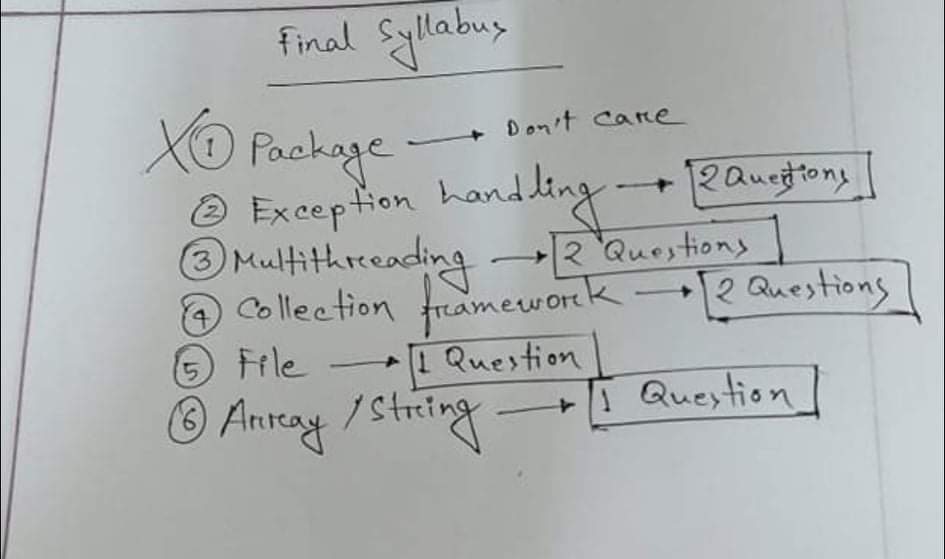 Final Syllabus
X ① Package → Don't care
② Exception handling → 2 Questions
③ Multithreading → 2 Questions
④ Collection framework → 2 Questions
⑤ File → 1 Question
⑥ Array / String → 1 Question